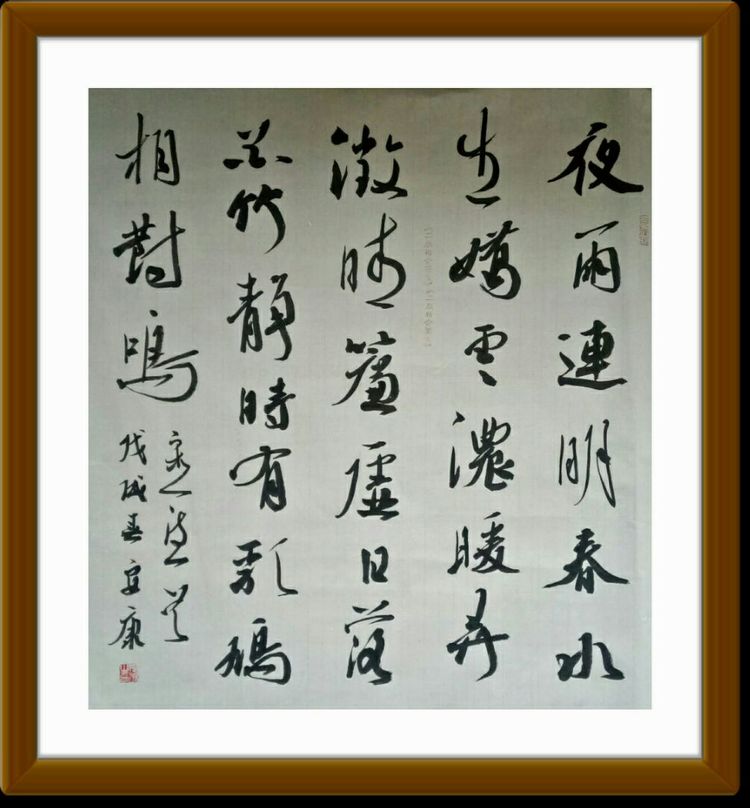 夜雨連明春水
生嬌雲濃暖弄
微晴簾虛日薄
花竹靜時有乳鳩
相對鳴
戊戌春宜康